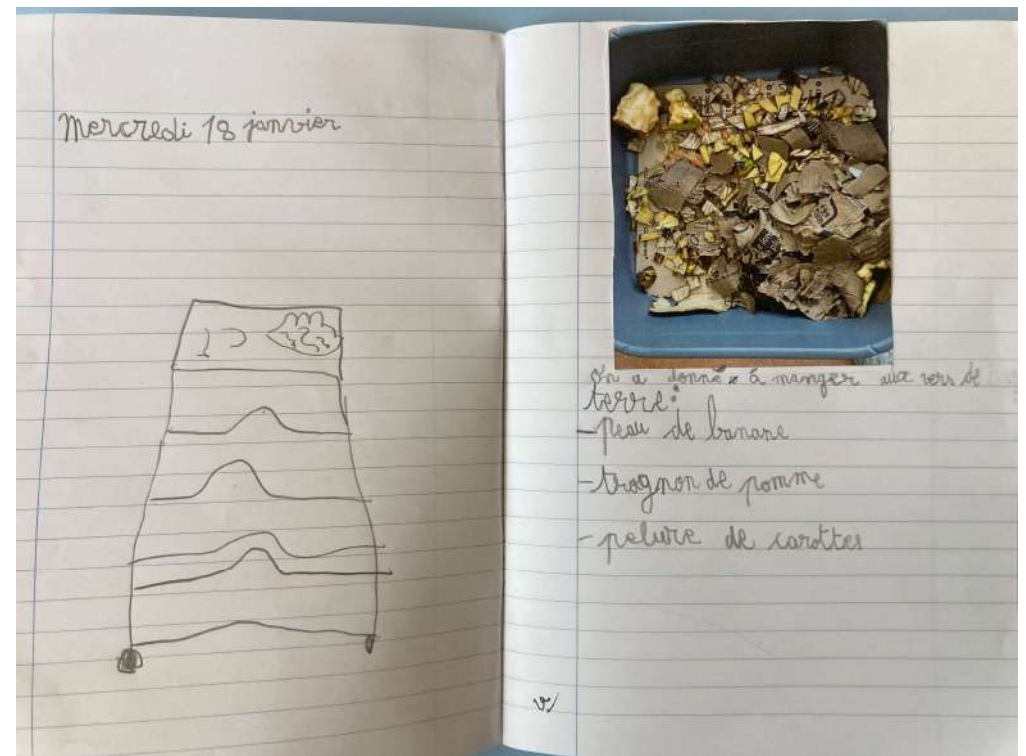 Mercredi 18 janvier
On a donné à manger aux vers de
terre:
- peau de banane
- trognon de pomme
- pelure de carottes